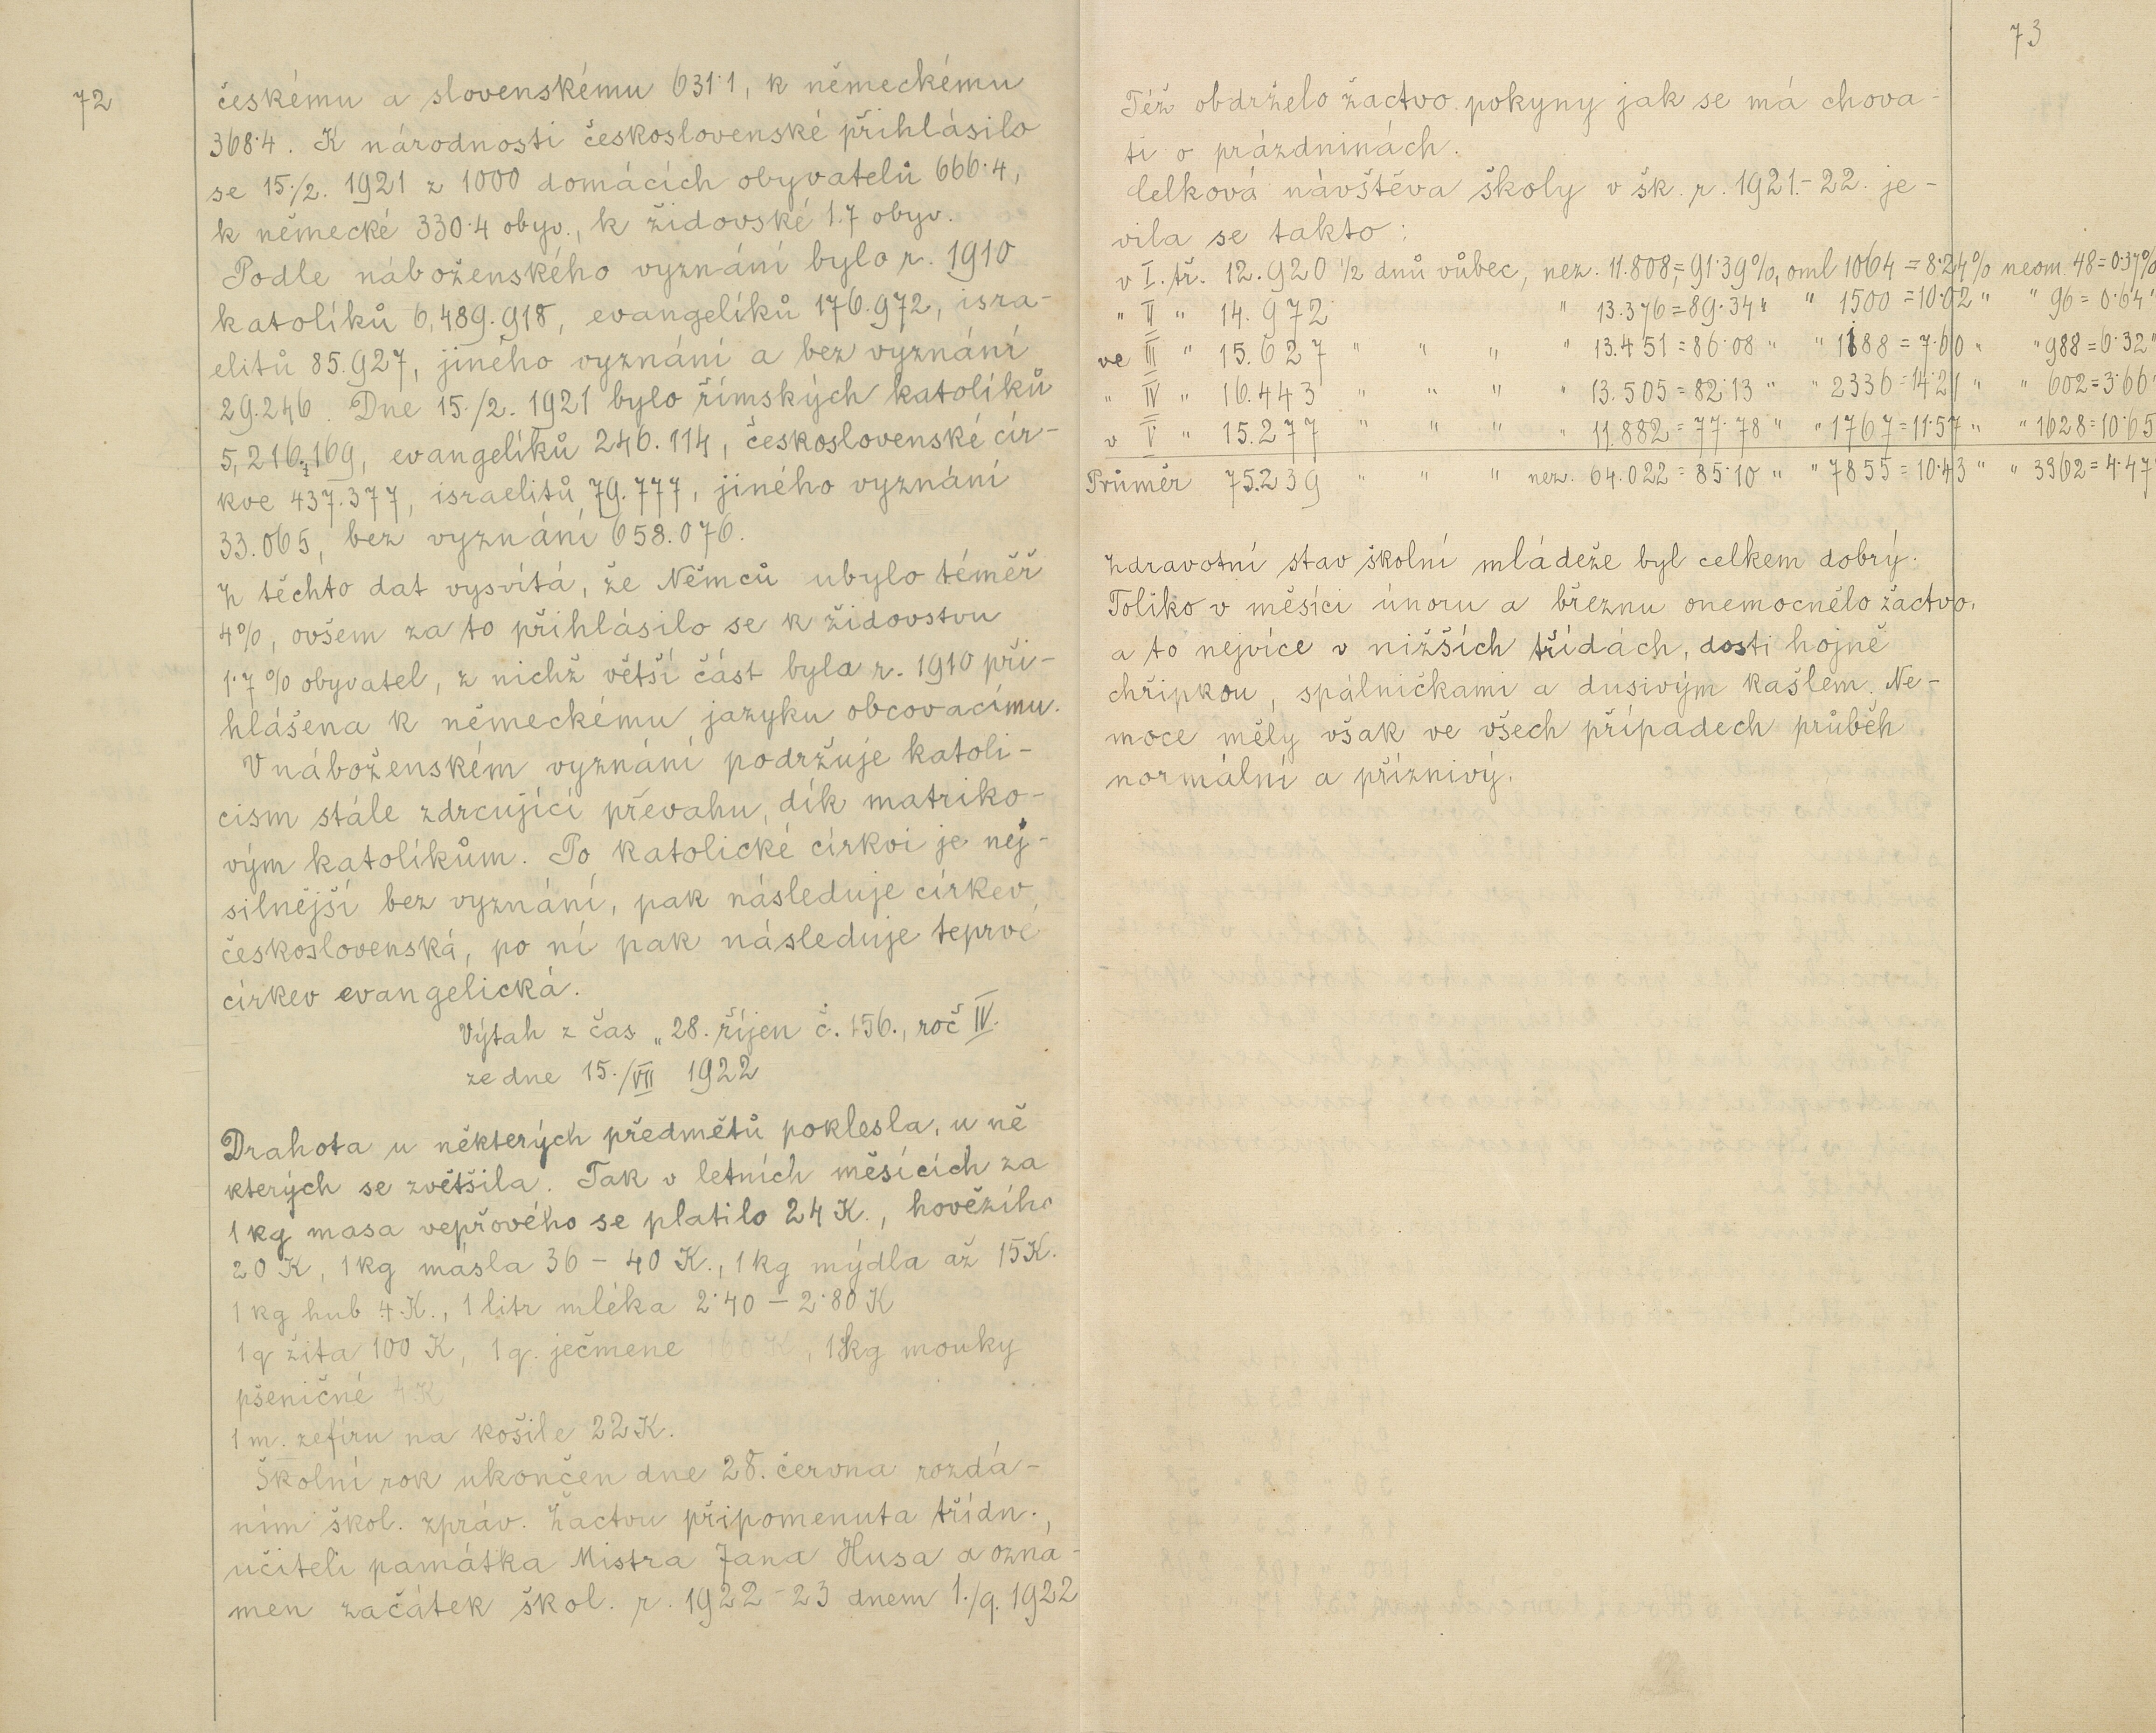 72
českému a slovenskému 631·1, k německému
368·4. K národnosti československé přihlásilo
se 15./2. 1921 z 1000 domácích obyvatelů 666·4,
k německé 330·4 obyv., k židovské 1.7 obyv.
Podle náboženského vyznání bylo r. 1910
katolíků 6,489.918, evangelíků 176.972, isra-
elitů 85.927, jiného vyznání a bez vyznání
29.246. Dne 15./2. 1921 bylo římských katolíků
5,216.169, evangelíků 246.114, československé cír-
kve 437.377, israelitů 79.777, jiného vyznání
33.065, bez vyznání 658.076.
Z těchto dat vysvítá, že Němců ubylo téměř
4%, ovšem za to přihlásilo se k židovstvu
1·7% obyvatel, z nichž větší část byla r. 1910 při-
hlášena k německému jazyku obcovacímu.
V náboženském vyznání podržuje katoli-
cism stále zdrcující převahu, dík matriko-
vým katolíkům. Po katolické církvi je nej-
silnější bez vyznání, pak následuje církev
československá, po ní pak následuje teprvé
církev evangelická.
Výtah z čas „28. říjen č. 156., roč IV.
ze dne 15./VII 1922
Drahota u některých předmětů poklesla, u ně
kterých se zvětšila. Tak v letních měsících za
1 kg masa vepřového se platilo 24 K., hovězího
20 K, 1 kg másla 36 – 40 K., 1 kg mýdla až 15 K.
1 kg hub 4 K., 1 litr mléka 2·40 – 2·80 K
1 q žita 100 K, 1 q. ječmene 160 K, 1 kg mouky
pšeničné 4 K
1 m. zefiru na košile 22 K.
Školní rok ukončen dne 28. června rozdá-
ním škol. zpráv. Žactvu připomenuta třídn.,
učiteli památka Mistra Jana Husa a ozná-
men začátek škol. r. 1922 – 23 dnem 1./9. 1922
73
Též obdrželo žactvo pokyny jak se má chova-
ti o prázdninách.
Celková návštěva školy v šk. r. 1921.– 22. je-
vila se takto:
v I. tř. 12.920 ½ dnů vůbec, nez. 11.808 = 91·39%, oml 1064 = 8·24% neom. 48 = 0·37%
" II " 14.972 " 13.376 = 89·34 " " 1500 = 10·02 " " 96 = 0·64 "
ve III " 15.627 " " " " 13.451 = 86·08 " " 1188 = 7·60 " " 988 = 6·32 "
" IV " 16.443 " " " " 13.505 = 82·13 " " 2336 = 14·21 " " 602 = 3·66 "
v V " 15.277 " " " " 11.882 = 77·78 " " 1767 = 11·57 " " 1628 = 10·65
Průměr 75.239 " " " nez. 64.022 = 85·10 " " 7855 = 10·43 " " 3362 = 4·47 "
Zdravotní stav školní mládeže byl celkem dobrý.
Toliko v měsíci únoru a březnu onemocnělo žactvo,
a to nejvíce v nižších třídách, dosti hojně
chřipkou, spálničkami a dusivým kašlem. Ne-
moce měly však ve všech případech průběh
normální a příznivý.